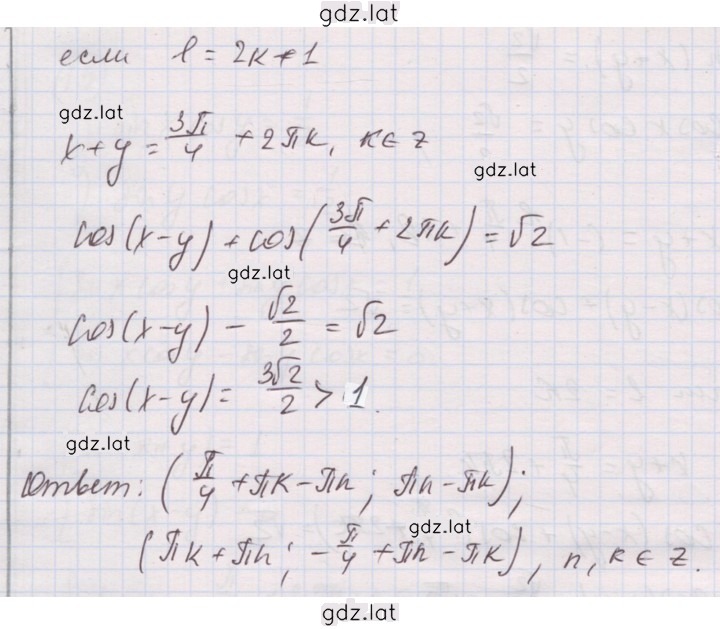 gdz.lat
если l = 2k+1
gdz.lat
x+y = 3π/4 + 2πk, k∈z
gdz.lat
cos(x-y) + cos(3π/4 + 2πk) = √2
gdz.lat
cos(x-y) - √2/2 = √2
cos(x-y) = 3√2/2 > 1.
gdz.lat
Ответ: (π/4 + πk - πn; πn - πk);
gdz.lat
(πk + πn; -π/4 + πn - πk), n, k ∈ z.
gdz.lat